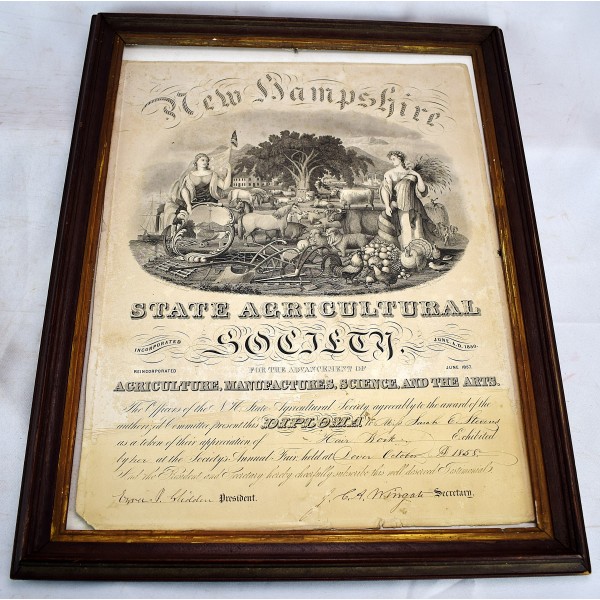 New Hampshire
STATE AGRICULTURAL
SOCIETY.
INCORPORATED JUNE, A.D. 1850.
FOR THE ADVANCEMENT OF
REINCORPORATED JUNE 1857.
AGRICULTURE, MANUFACTURES, SCIENCE, AND THE ARTS.
The Officers of the N.H. State Agricultural Society agreeably to the award of the
authorized Committee present this DIPLOMA to Miss Sarah C. Stevens
as a token of their appreciation of Hair Work Exhibited
by her at the Society's Annual Fair, held at Dover October A.D. 1858.
And the President and Secretary hereby cheerfully subscribe this well deserved Testimonial.
President.
Secretary.